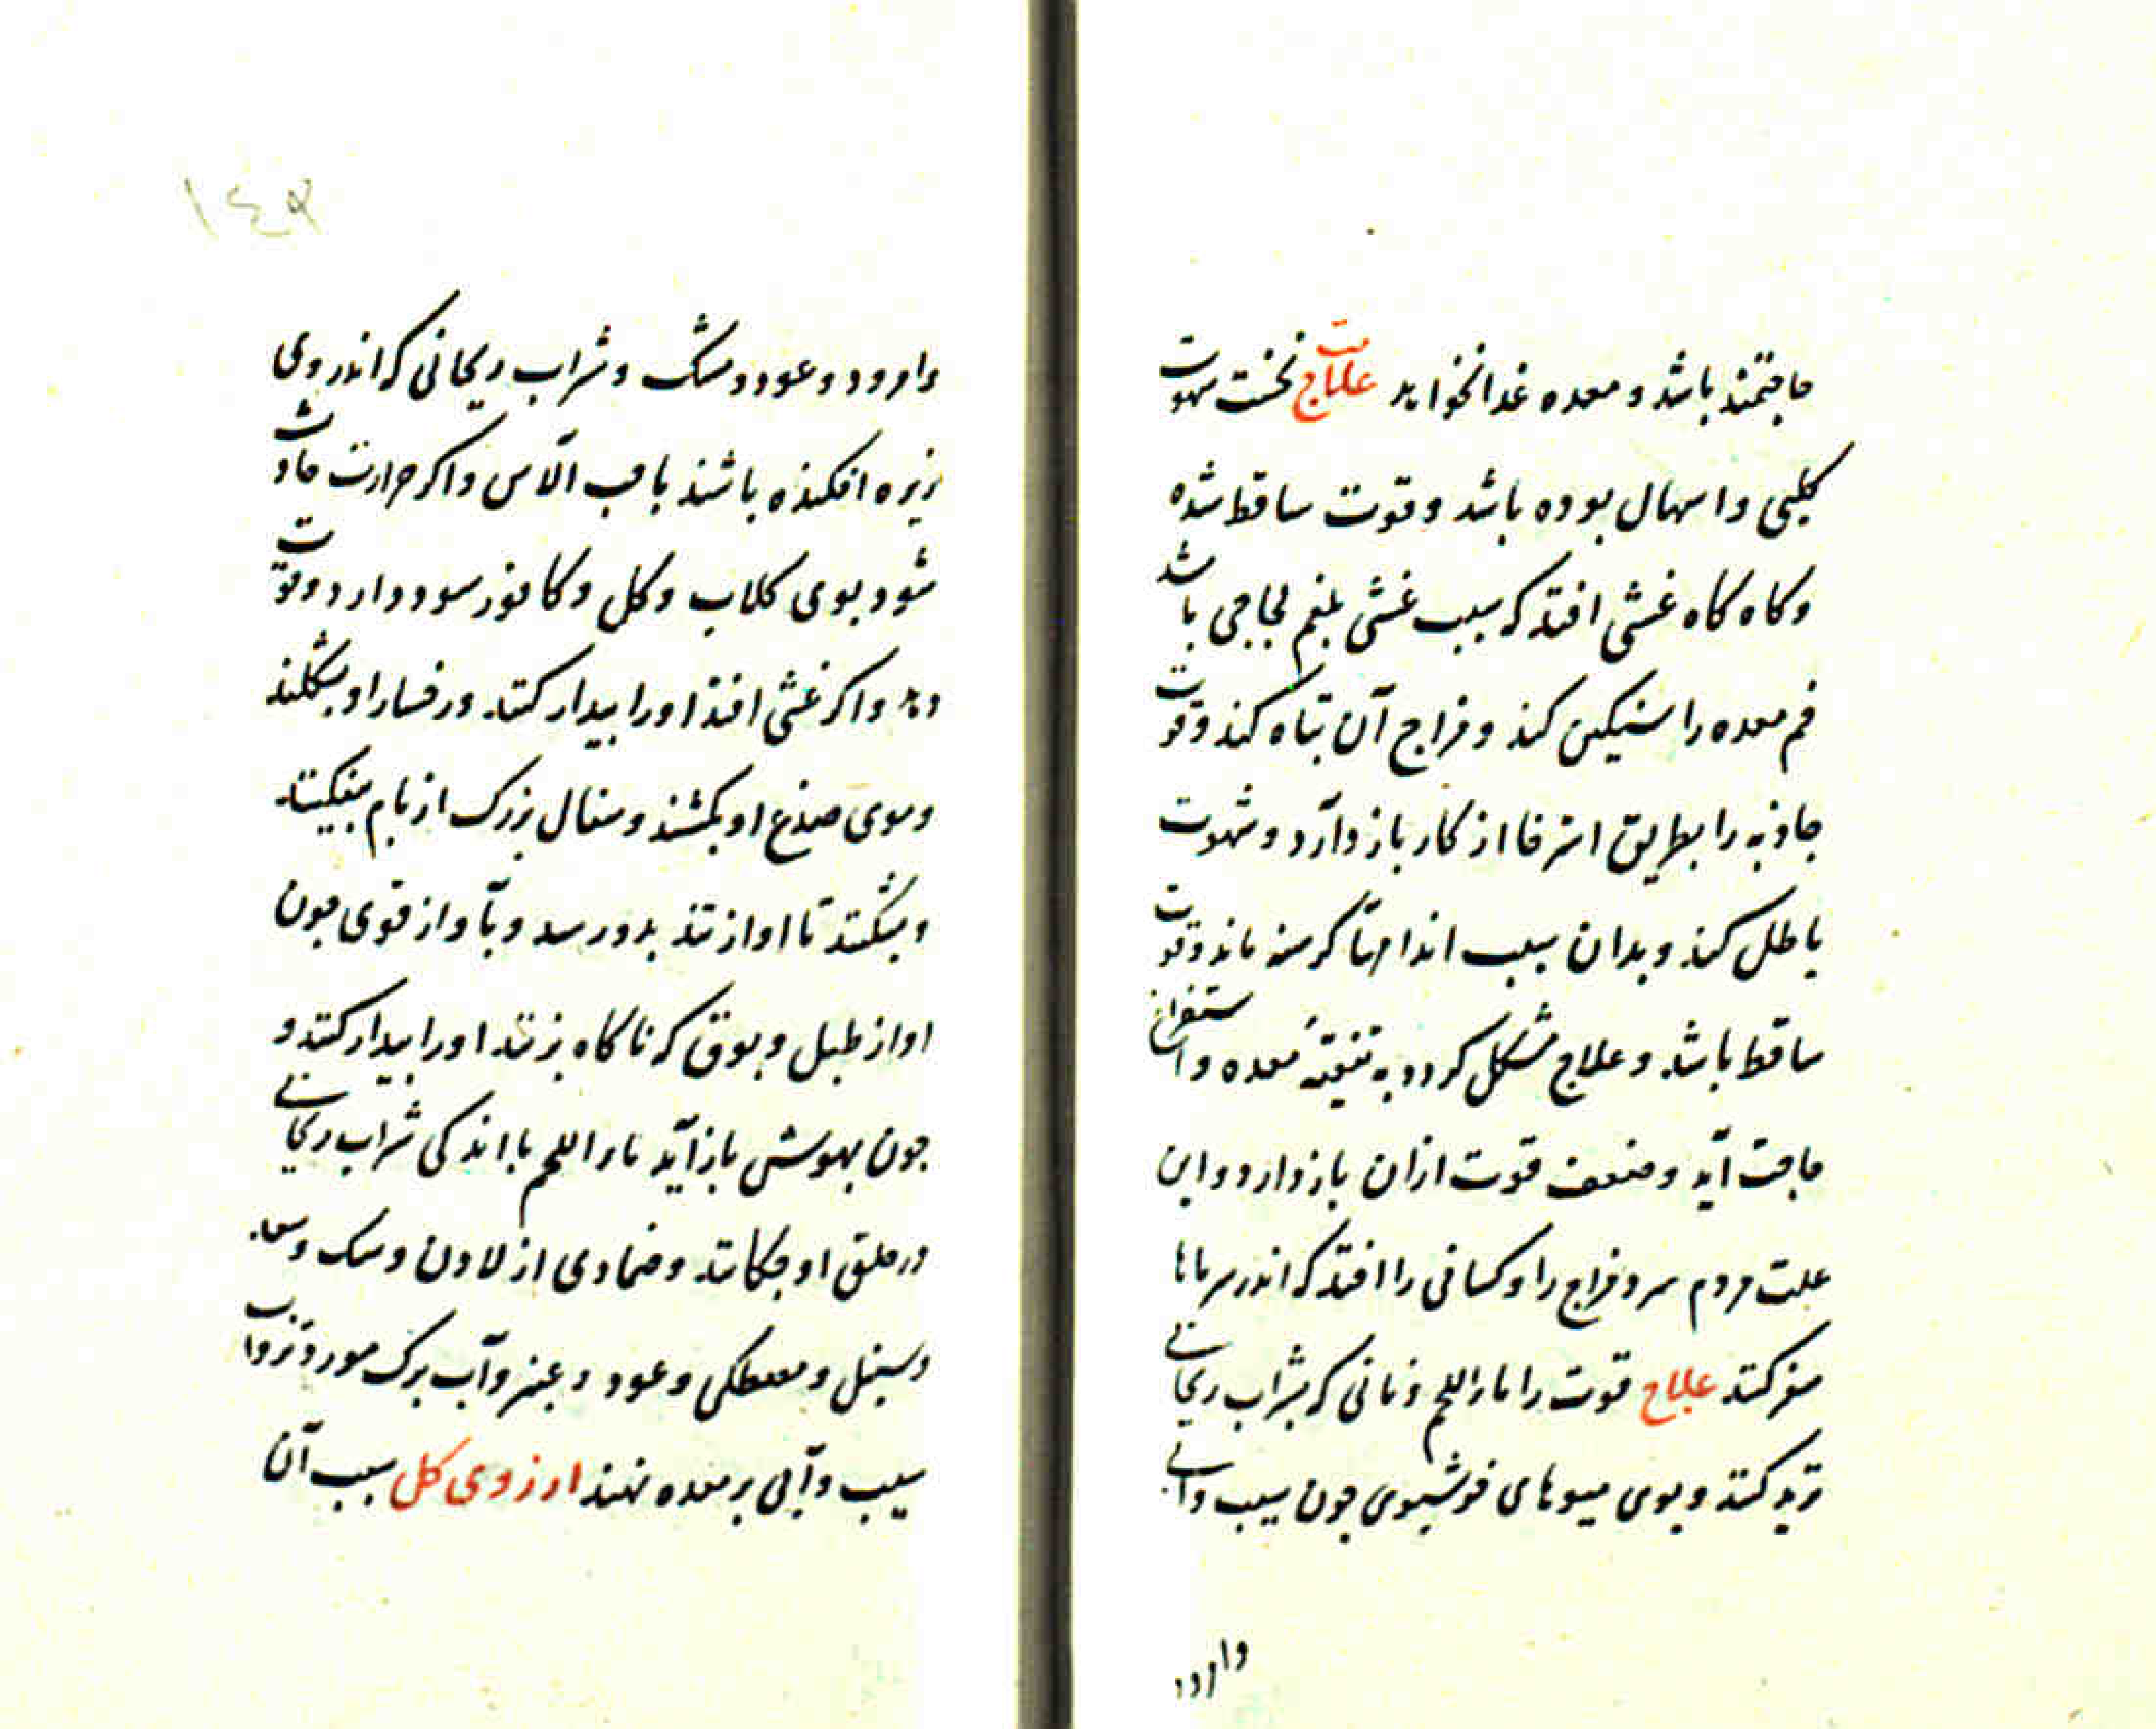 حاجتمند باشد و معده غذا نخواهد علامت نخست شهوت
کلبی و اسهال بوده باشد و قوت ساقط شده
و کاه کاه غشی افتد که سبب غشی بلغم لجاجی باشد
فم معده را سنکین کند و مزاج آن تباه کند و قوت
جاذبه را بطریق استرخا از کار باز دارد و شهوت
باطل کند و بدان سبب اندامها کرسنه ماند و قوت
ساقط باشد و علاج مشکل کردد به تنقیهٔ معده و استفراغ
حاجت آید و ضعف قوت ازان باز دارد و این
علت مردم سرد مزاج را و کسانی را افتد که اندر سرماها
سفر کنند علاج قوت را ماء اللحم و نانی که بشراب ریحانی
ترید کنند و بوی میوهای خوشبوی جون سیب و آبی
وامرود
وامرود و عود و مشک و شراب ریحانی که اندر وی
زیره افکنده باشند با حب الآس و اکر حرارت حادث
شود بوی کلاب و کل و کافور سود دارد و قوت
دهد و اکر غشی افتد او را بیدار کنند و رخسار او بشکلند
و موی صدغ او بکشند و سفال بزرک از بام بیفکنند
و بشکنند تا اواز تند بدو رسد و بآواز قوی جون
اواز طبل و بوق که ناکاه بزنند او را بیدار کنند و
جون بهوش باز آید ماء اللحم با اندکی شراب ریحانی
در حلق او جکانند و ضمادی از لادن و سک و
و سنبل و مصطکی و عود و عنبر و آب برک مورد و شراب
سیب و آبی بر معده نهند ارزوی کل سبب آن